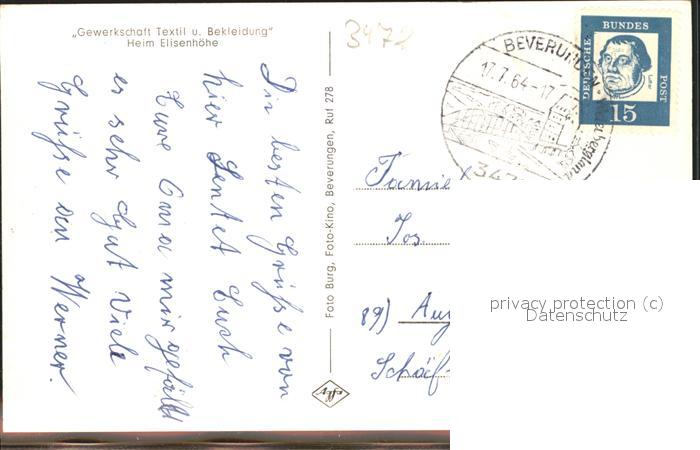 „Gewerkschaft Textil u. Bekleidung"
Heim Elisenhöhe
3472
Die besten Grüße von
hier Sentet Euch
Eure Oma mir gefällt
es sehr Gut Viele
Grüße an Werner.
Foto Burg, Foto-Kino, Beverungen, Ruf 278
BEVERUNGEN
17.7.64-17
Weserbergland
347
DEUTSCHE
BUNDES
POST
Luther
15
Familie
Jos.
89)
Schäf-
privacy protection (c)
Datenschutz